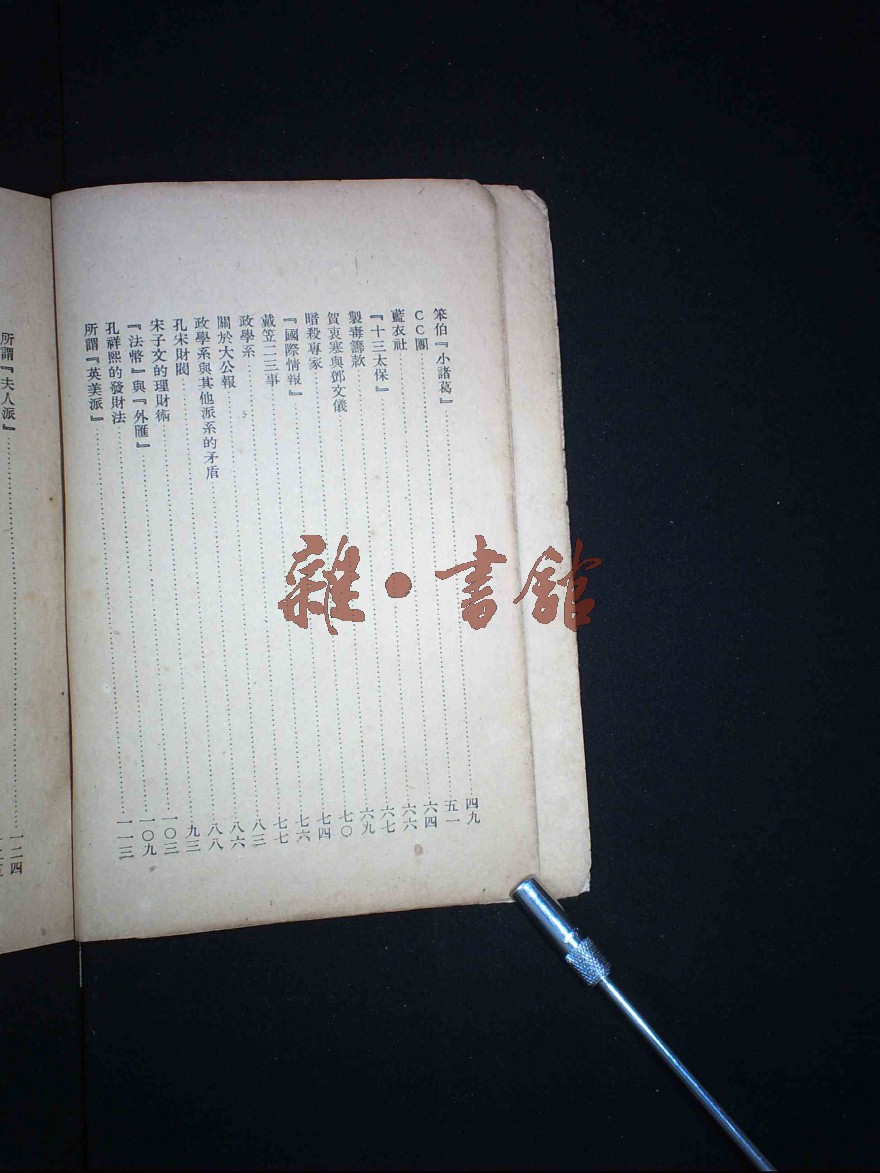 笨伯『小諸葛』……四九
CC團……五一
藍衣社……六四
『十三太保』……六六
製毒籌款……六七
賀衷寒與鄧文儀……六九
暗殺專家……七〇
『國際情報』……七四
戴笠二三事……七六
政學系……七七
關於大公報……八三
政學系與其他派系的矛盾……八六
孔宋財閥……八八
宋子文的理財術……九三
『法幣』與『外匯』……一〇三
孔祥熙的發財法……一〇九
所謂『英美派』……一一三
所謂『夫人派』……一二四
雜·書館